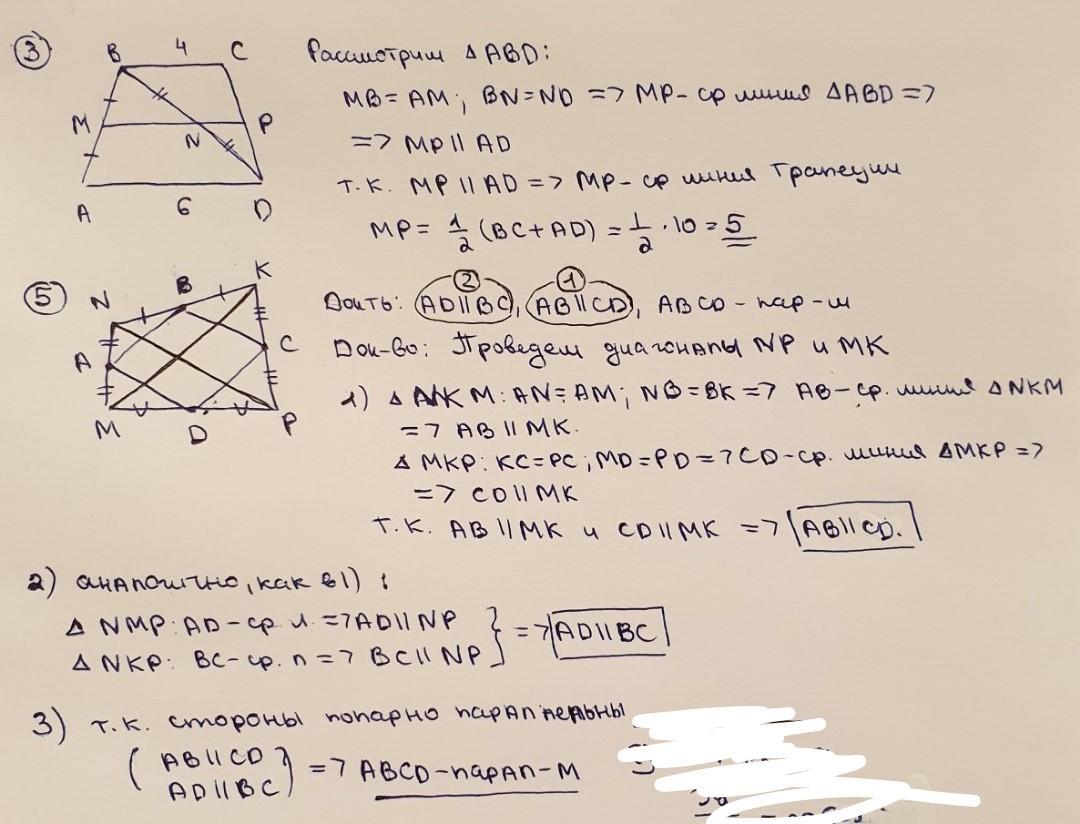 3
B 4 C
M N P
A 6 D
Рассмотрим Δ ABD:
MB = AM ; BN = ND => MP - ср линия ΔABD =>
=> MP || AD
т.к. MP || AD => MP - ср линия трапеции
MP = 1/2 (BC + AD) = 1/2 · 10 = 5
5
N B K
A C
M D P
2 1
Док-ть: AD||BC, AB||CD, ABCD - пар-м
Док-во: Проведем диагонали NP и MK
1) Δ NKM: AN = AM; NB = BK => AB - ср. линия Δ NKM
=> AB || MK.
Δ MKP: KC = PC; MD = PD => CD - ср. линия ΔMKP =>
=> CD || MK
т.к. AB || MK и CD || MK => AB || CD.
2) аналогично, как в 1) :
Δ NMP: AD - ср. л. => AD || NP
Δ NKP: BC - ср. л => BC || NP } => AD || BC
3) т.к. стороны попарно параллельны
( AB || CD
AD || BC ) => ABCD - парал-м